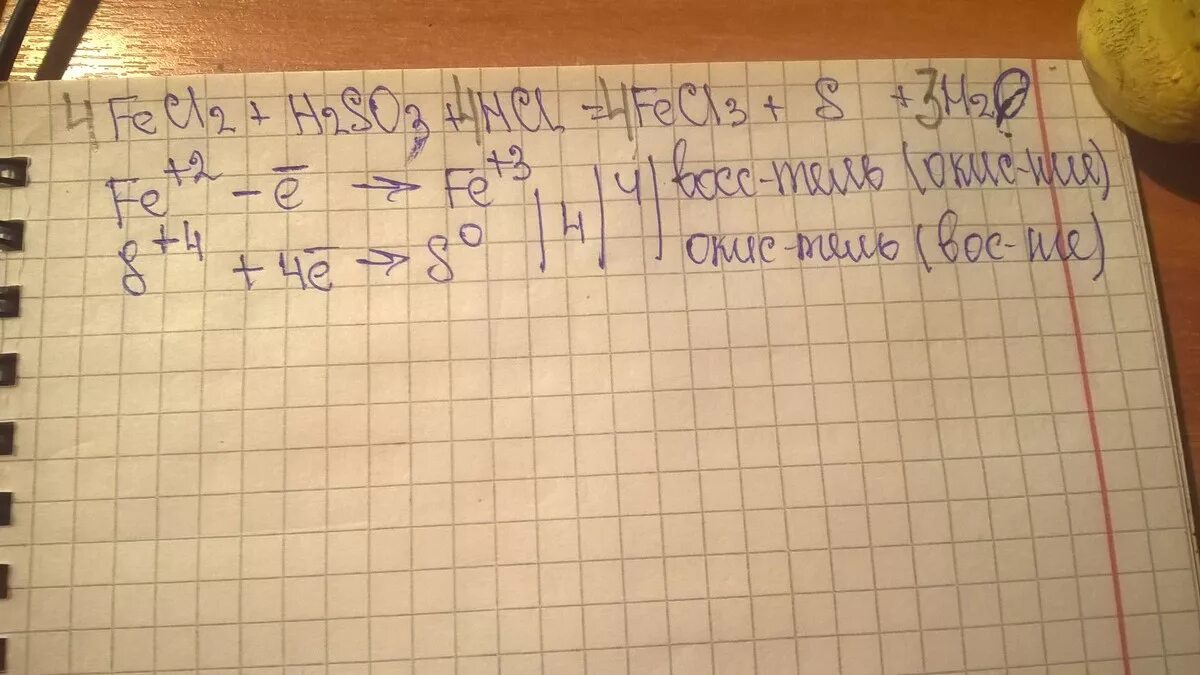 4FeCl₂ + H₂SO₃ + 4HCl = 4FeCl₃ + S + 3H₂O
Fe⁺² - ē → Fe⁺³ | | 4 | восс-тель (окис-ние)
S⁺⁴ + 4ē → S⁰ | 4 | | окис-тель (вос-ние)